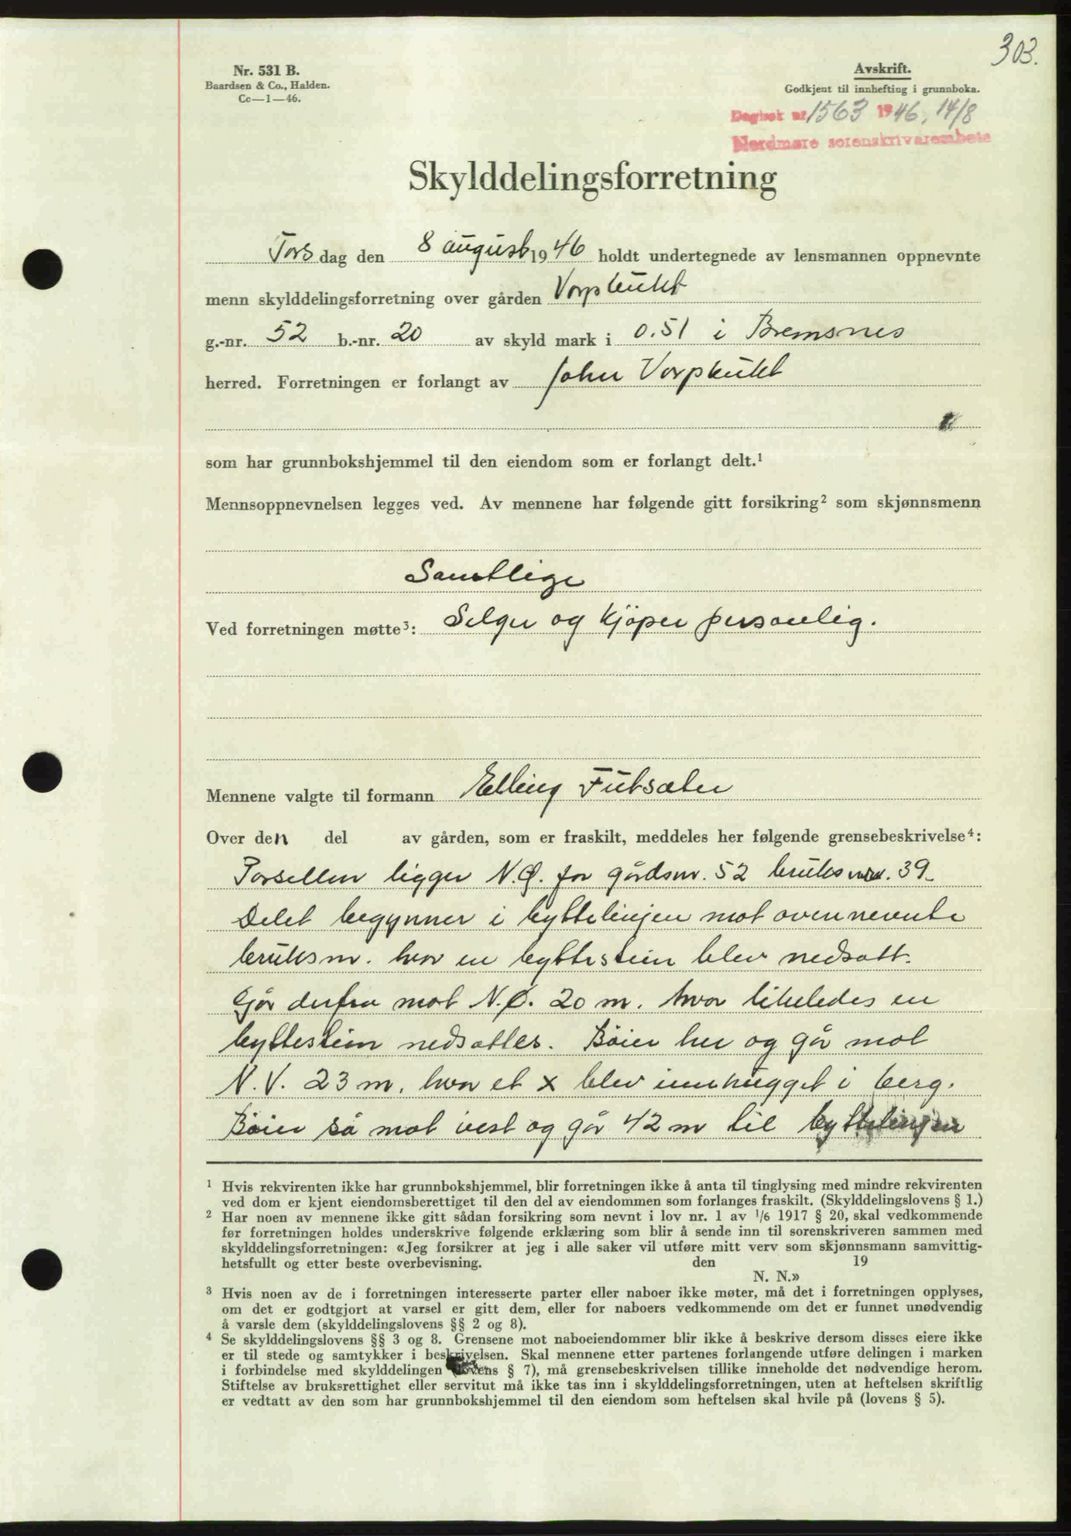 303.
Nr. 531 B.
Baardsen & Co., Halden.
Cc—1—46.
Avskrift.
Godkjent til innhefting i grunnboka.
Dagbok nr 1563 1946, 14/8
Nordmøre sorenskriverembete
Skylddelingsforretning
Tors dag den 8 august 1946 holdt undertegnede av lensmannen oppnevnte
menn skylddelingsforretning over gården Vorpbukt
g.-nr. 52 b.-nr. 20 av skyld mark i 0.51 i Bremsnes
herred. Forretningen er forlangt av John Vorpbukt
som har grunnbokshjemmel til den eiendom som er forlangt delt.¹
Mennsoppnevnelsen legges ved. Av mennene har følgende gitt forsikring² som skjønnsmenn
Samtlige
Ved forretningen møtte³: Selger og kjøper personlig.
Mennene valgte til formann Elling Futsæter
Over den del av gården, som er fraskilt, meddeles her følgende grensebeskrivelse⁴:
Parsellen ligger N.Ø. for gårdsnr. 52 bruksnr. 39.
Delet begynner i byttelinjen mot ovennevnte
bruksnr. hvor en byttestein blev nedsatt.
Går derfra mot N.Ø. 20 m. hvor likeledes en
byttestein nedsattes. Bøier her og går mot
N.V. 23 m. hvor et x blev innhugget i berg.
Bøier så mot vest og går 42 m til byttelinjen
¹ Hvis rekvirenten ikke har grunnbokshjemmel, blir forretningen ikke å anta til tinglysing med mindre rekvirenten
ved dom er kjent eiendomsberettiget til den del av eiendommen som forlanges fraskilt. (Skylddelingslovens § 1.)
² Har noen av mennene ikke gitt sådan forsikring som nevnt i lov nr. 1 av 1/6 1917 § 20, skal vedkommende
før forretningen holdes underskrive følgende erklæring som blir å sende inn til sorenskriveren sammen med
skylddelingsforretningen: «Jeg forsikrer at jeg i alle saker vil utføre mitt verv som skjønnsmann samvittig-
hetsfullt og etter beste overbevisning. den 19
N. N.»
³ Hvis noen av de i forretningen interesserte parter eller naboer ikke møter, må det i forretningen opplyses,
om det er godtgjort at varsel er gitt dem, eller for naboers vedkommende om det er funnet unødvendig
å varsle dem (skylddelingslovens §§ 2 og 8).
⁴ Se skylddelingslovens §§ 3 og 8. Grensene mot naboeiendommer blir ikke å beskrive dersom disses eiere ikke
er til stede og samtykker i beskrivelsen. Skal mennene etter partenes forlangende utføre delingen i marken
i forbindelse med skylddelingen (lovens § 7), må grensebeskrivelsen tillike inneholde det nødvendige herom.
Stiftelse av bruksrettighet eller servitut må ikke tas inn i skylddelingsforretningen, uten at heftelsen skriftlig
er vedtatt av den som har grunnbokshjemmel til den eiendom som heftelsen skal hvile på (lovens § 5).